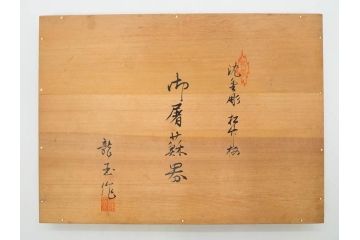 沈金彫 松竹梅
御屠蘇器
龍玉作